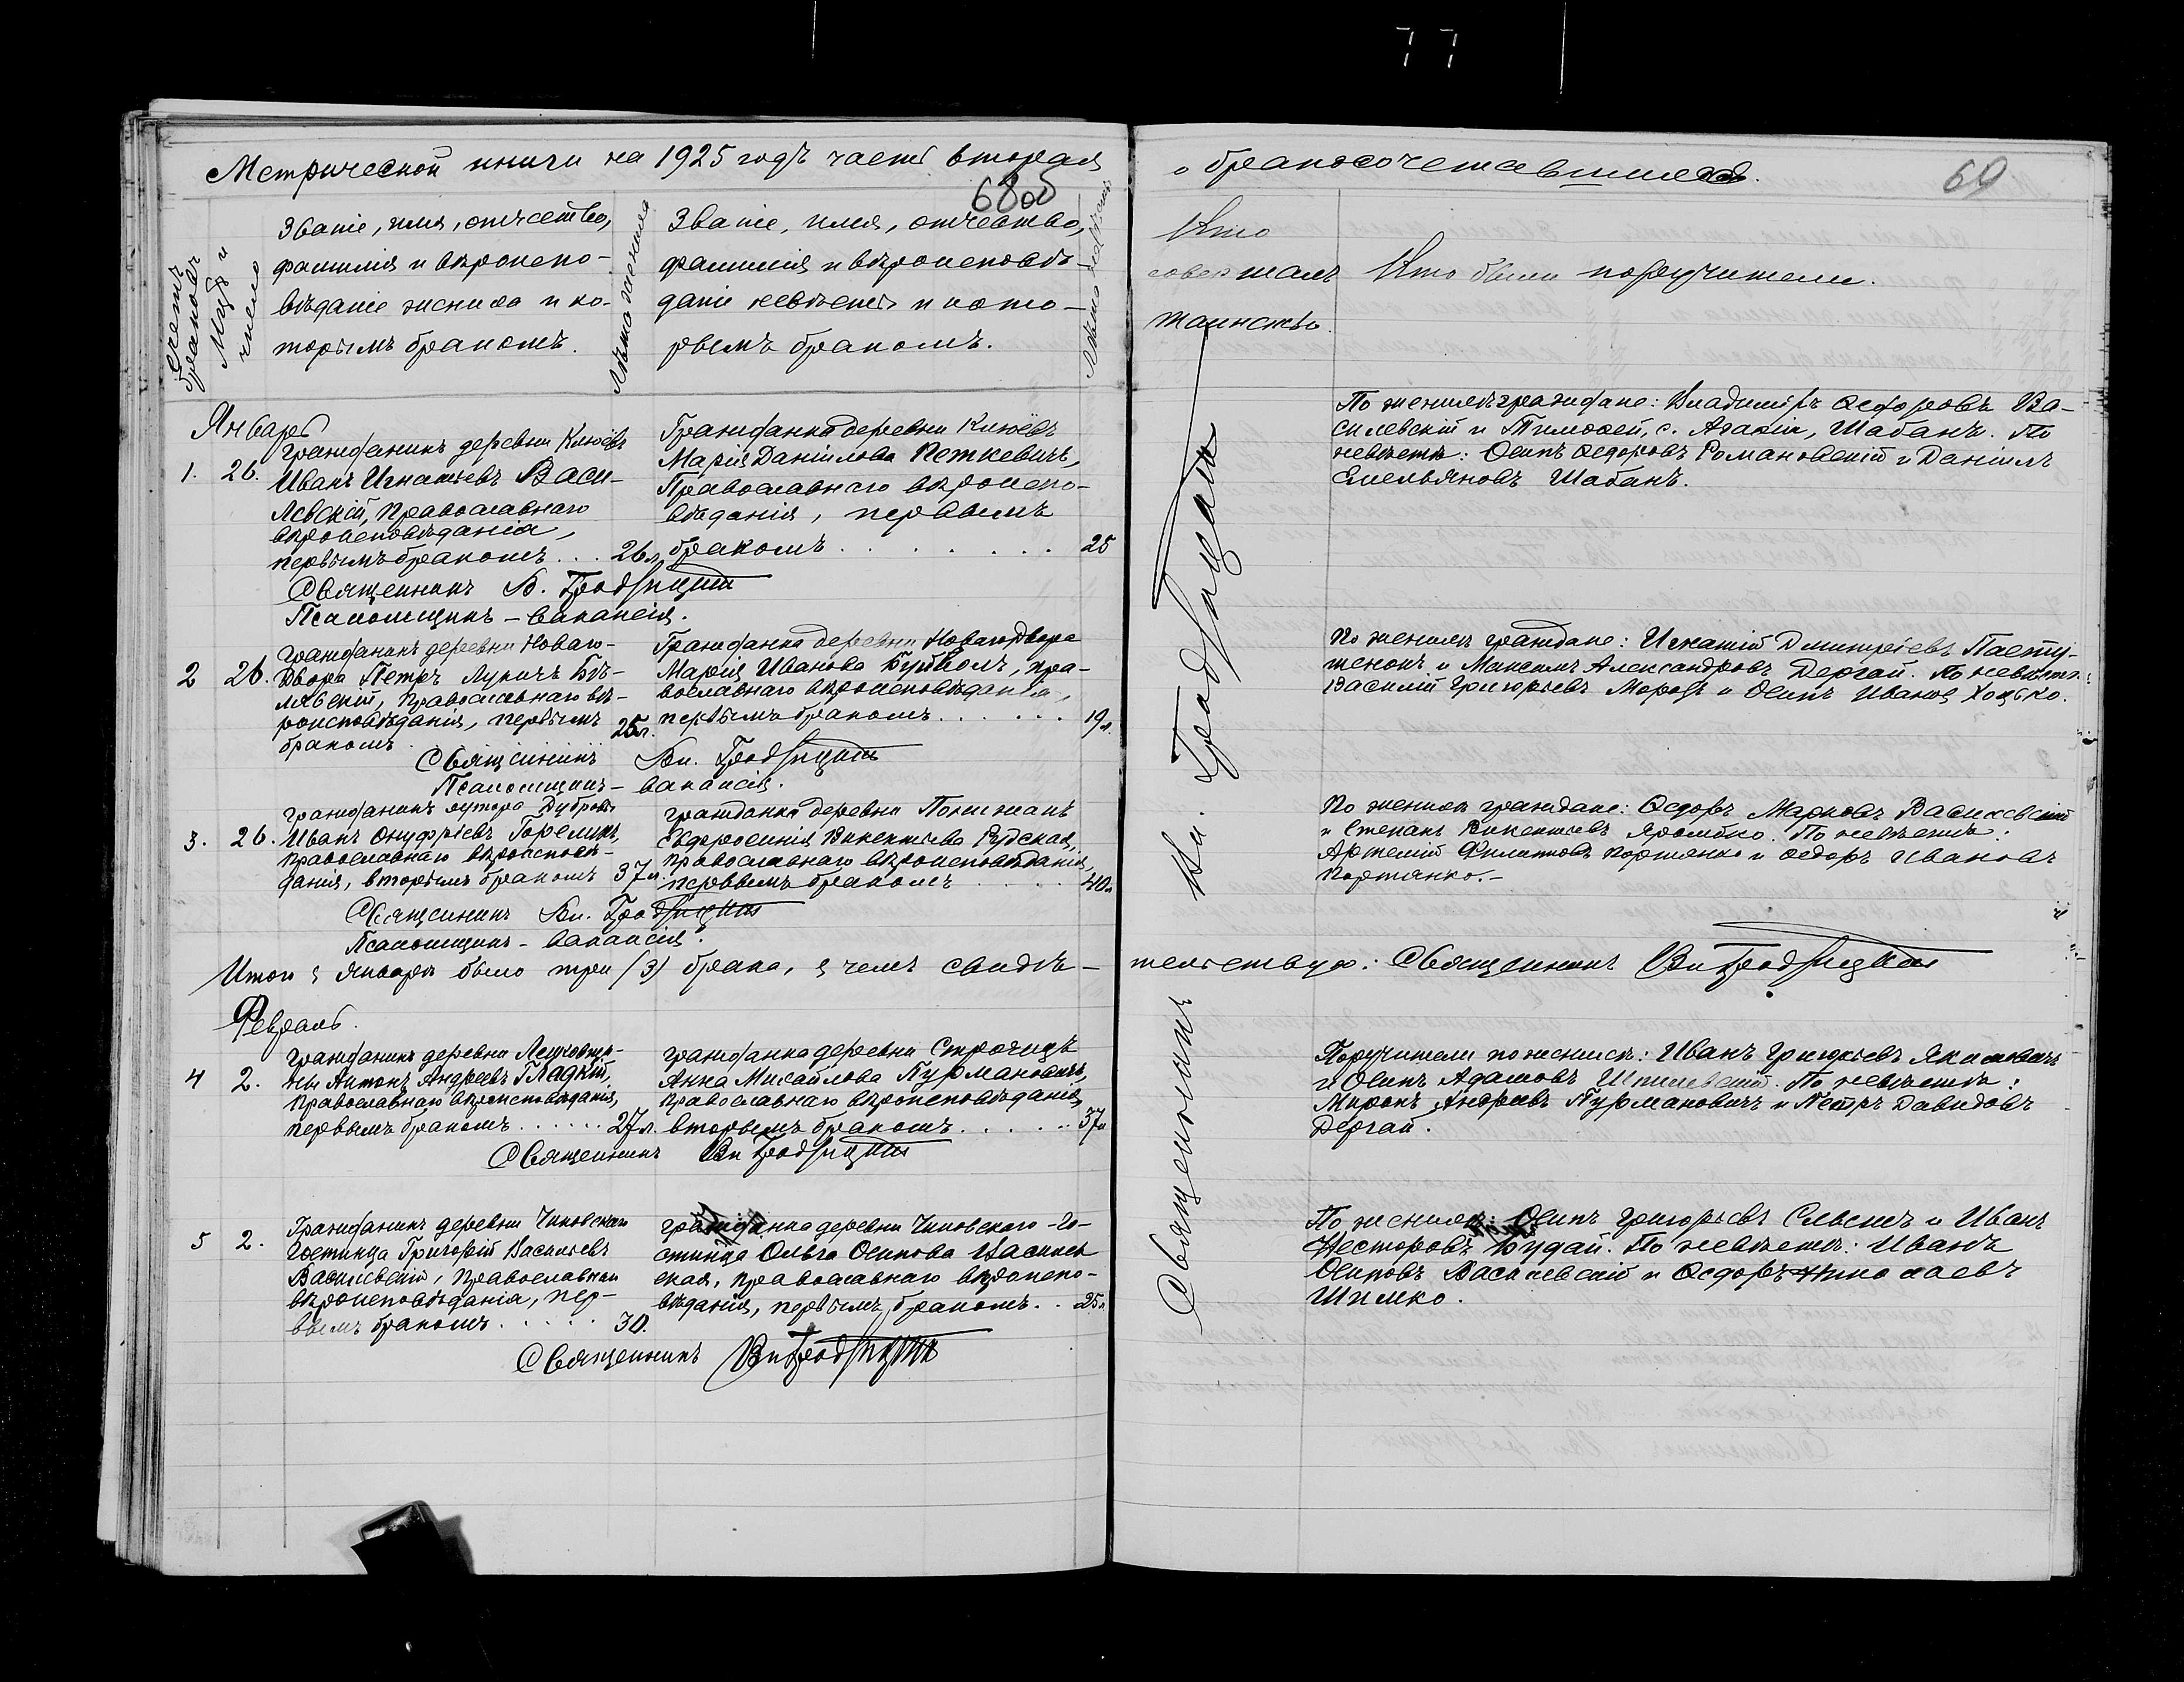 77
Метрической книги на 1925 годъ часть вторая
68об
о бракосочетавшихся.
69
Счетъ браковъ
Мцъ и число
Званіе, имя, отчество,
фамилія и вѣроиспо-
вѣданіе жениха и ко-
торымъ бракомъ.
Лѣта жениха
Званіе, имя, отчество,
фамилія и вѣроисповѣ-
даніе невѣсты и кото-
рымъ бракомъ.
Лѣта невѣсты
Кто
совершалъ
таинство.
Кто были поручители.
Январь
1. 26.
Гражданинъ деревни Клюевъ
Иванъ Игнатьевъ Васи-
левскій, Православнаго
вѣроисповѣданія,
первымъ бракомъ . . . 26 л.
Гражданка деревни Клюевъ
Марія Даніилова Петкевичъ,
Православнаго вѣроиспо-
вѣданія, первымъ
бракомъ . . . . . . . 25
По женихѣ граждане: Владиміръ Ѳедоровъ Ва-
силевскій и Тимоѳей, с. Адама, Шабанъ. По
невѣстѣ: Осипъ Ѳедоровъ Романовскій и Даніилъ
Емельяновъ Шабанъ.
Священникъ В. Гродзицкій
Псаломщикъ – вакансія.
2 26.
Гражданинъ деревни Новаго-
Двора Петръ Лукичъ Бѣ-
лявскій, Православнаго вѣ-
роисповѣданія, первымъ
бракомъ. 25 л.
Гражданка деревни Новагодвора
Марія Иванова, пра-
вославнаго вѣроисповѣданія,
первымъ бракомъ . . . . . . 19 л.
По женихѣ граждане: Игнатій Дмитріевъ Пасту-
шенокъ и Максимъ Александровъ Дергай. По невѣстѣ:
Василій Григорьевъ Морозъ и Осипъ Иванов Хоцько.
Священникъ Вл. Гродзицкій
Псаломщикъ – вакансія.
3. 26.
гражданинъ хутора Дуброва
Иванъ Онуфріевъ Гореликъ,
Православнаго вѣроисповѣ-
данія, вторымъ бракомъ 37 л.
гражданка деревни
Евфросинія Викентьева Рудская,
Православнаго вѣроисповѣданія,
первымъ бракомъ . . . . . 40 л.
По женихѣ граждане: Ѳедоръ Марковъ Василевскій
и Степанъ Викентьевъ. По невѣстѣ:
Артемій Филиповъ Портянко и Ѳедоръ Ивановъ
Портянко. –
Священникъ Вл. Гродзицкій
Псаломщикъ – вакансія.
Итого въ январѣ было три (3) брака, въ чемъ свидѣ-
тельствую: Священникъ Вл Гродзицкій
Февраль.
4 2.
гражданинъ деревни
Антонъ Андреевъ Гладкій,
Православнаго вѣроисповѣданія,
первымъ бракомъ . . . . . . 27 л.
гражданка деревни Строчицъ
Анна Михайлова Курмановичъ,
Православнаго вѣроисповѣданія,
вторымъ бракомъ . . . . . . 37 л
Поручители по женихѣ: Иванъ Григорьевъ Якимовичъ
и Осипъ Адамовъ Шпилевскій. По невѣстѣ:
Миронъ Андреевъ Курмановичъ и Петръ Давидовъ
Дергай.
Священникъ Вл Гродзицкій
5 2.
Гражданинъ деревни Чиковскаго
Гостинца Григорій Васильевъ
Василевскій, Православнаго
вѣроисповѣданія, пер-
вымъ бракомъ . . . . . 30.
гражданка деревни Чиковскаго-Го-
стинца Ольга Осипова Василев
ская, Православнаго вѣроиспо-
вѣданія, первымъ бракомъ . . 25 л
По женихѣ: Осипъ Григорьевъ и Иванъ
Несторовъ Будай. По невѣстѣ: Иванъ
Осиповъ Василевскій и Ѳедоръ Николаевъ
Шимко.
Священникъ Вл Гродзицкій
Священникъ Вл. Гродзицкій